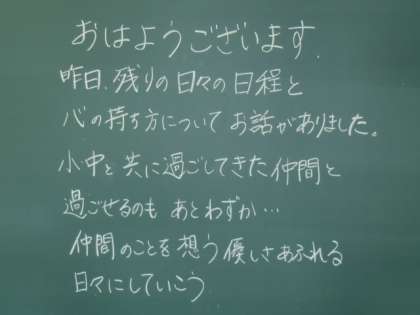 おはようございます.
昨日、残りの日々の日程と
心の持ち方について お話がありました。
小中と共に過ごしてきた仲間と
過ごせるのも あとわずか…
仲間のことを想う優しさあふれる
日々にしていこう